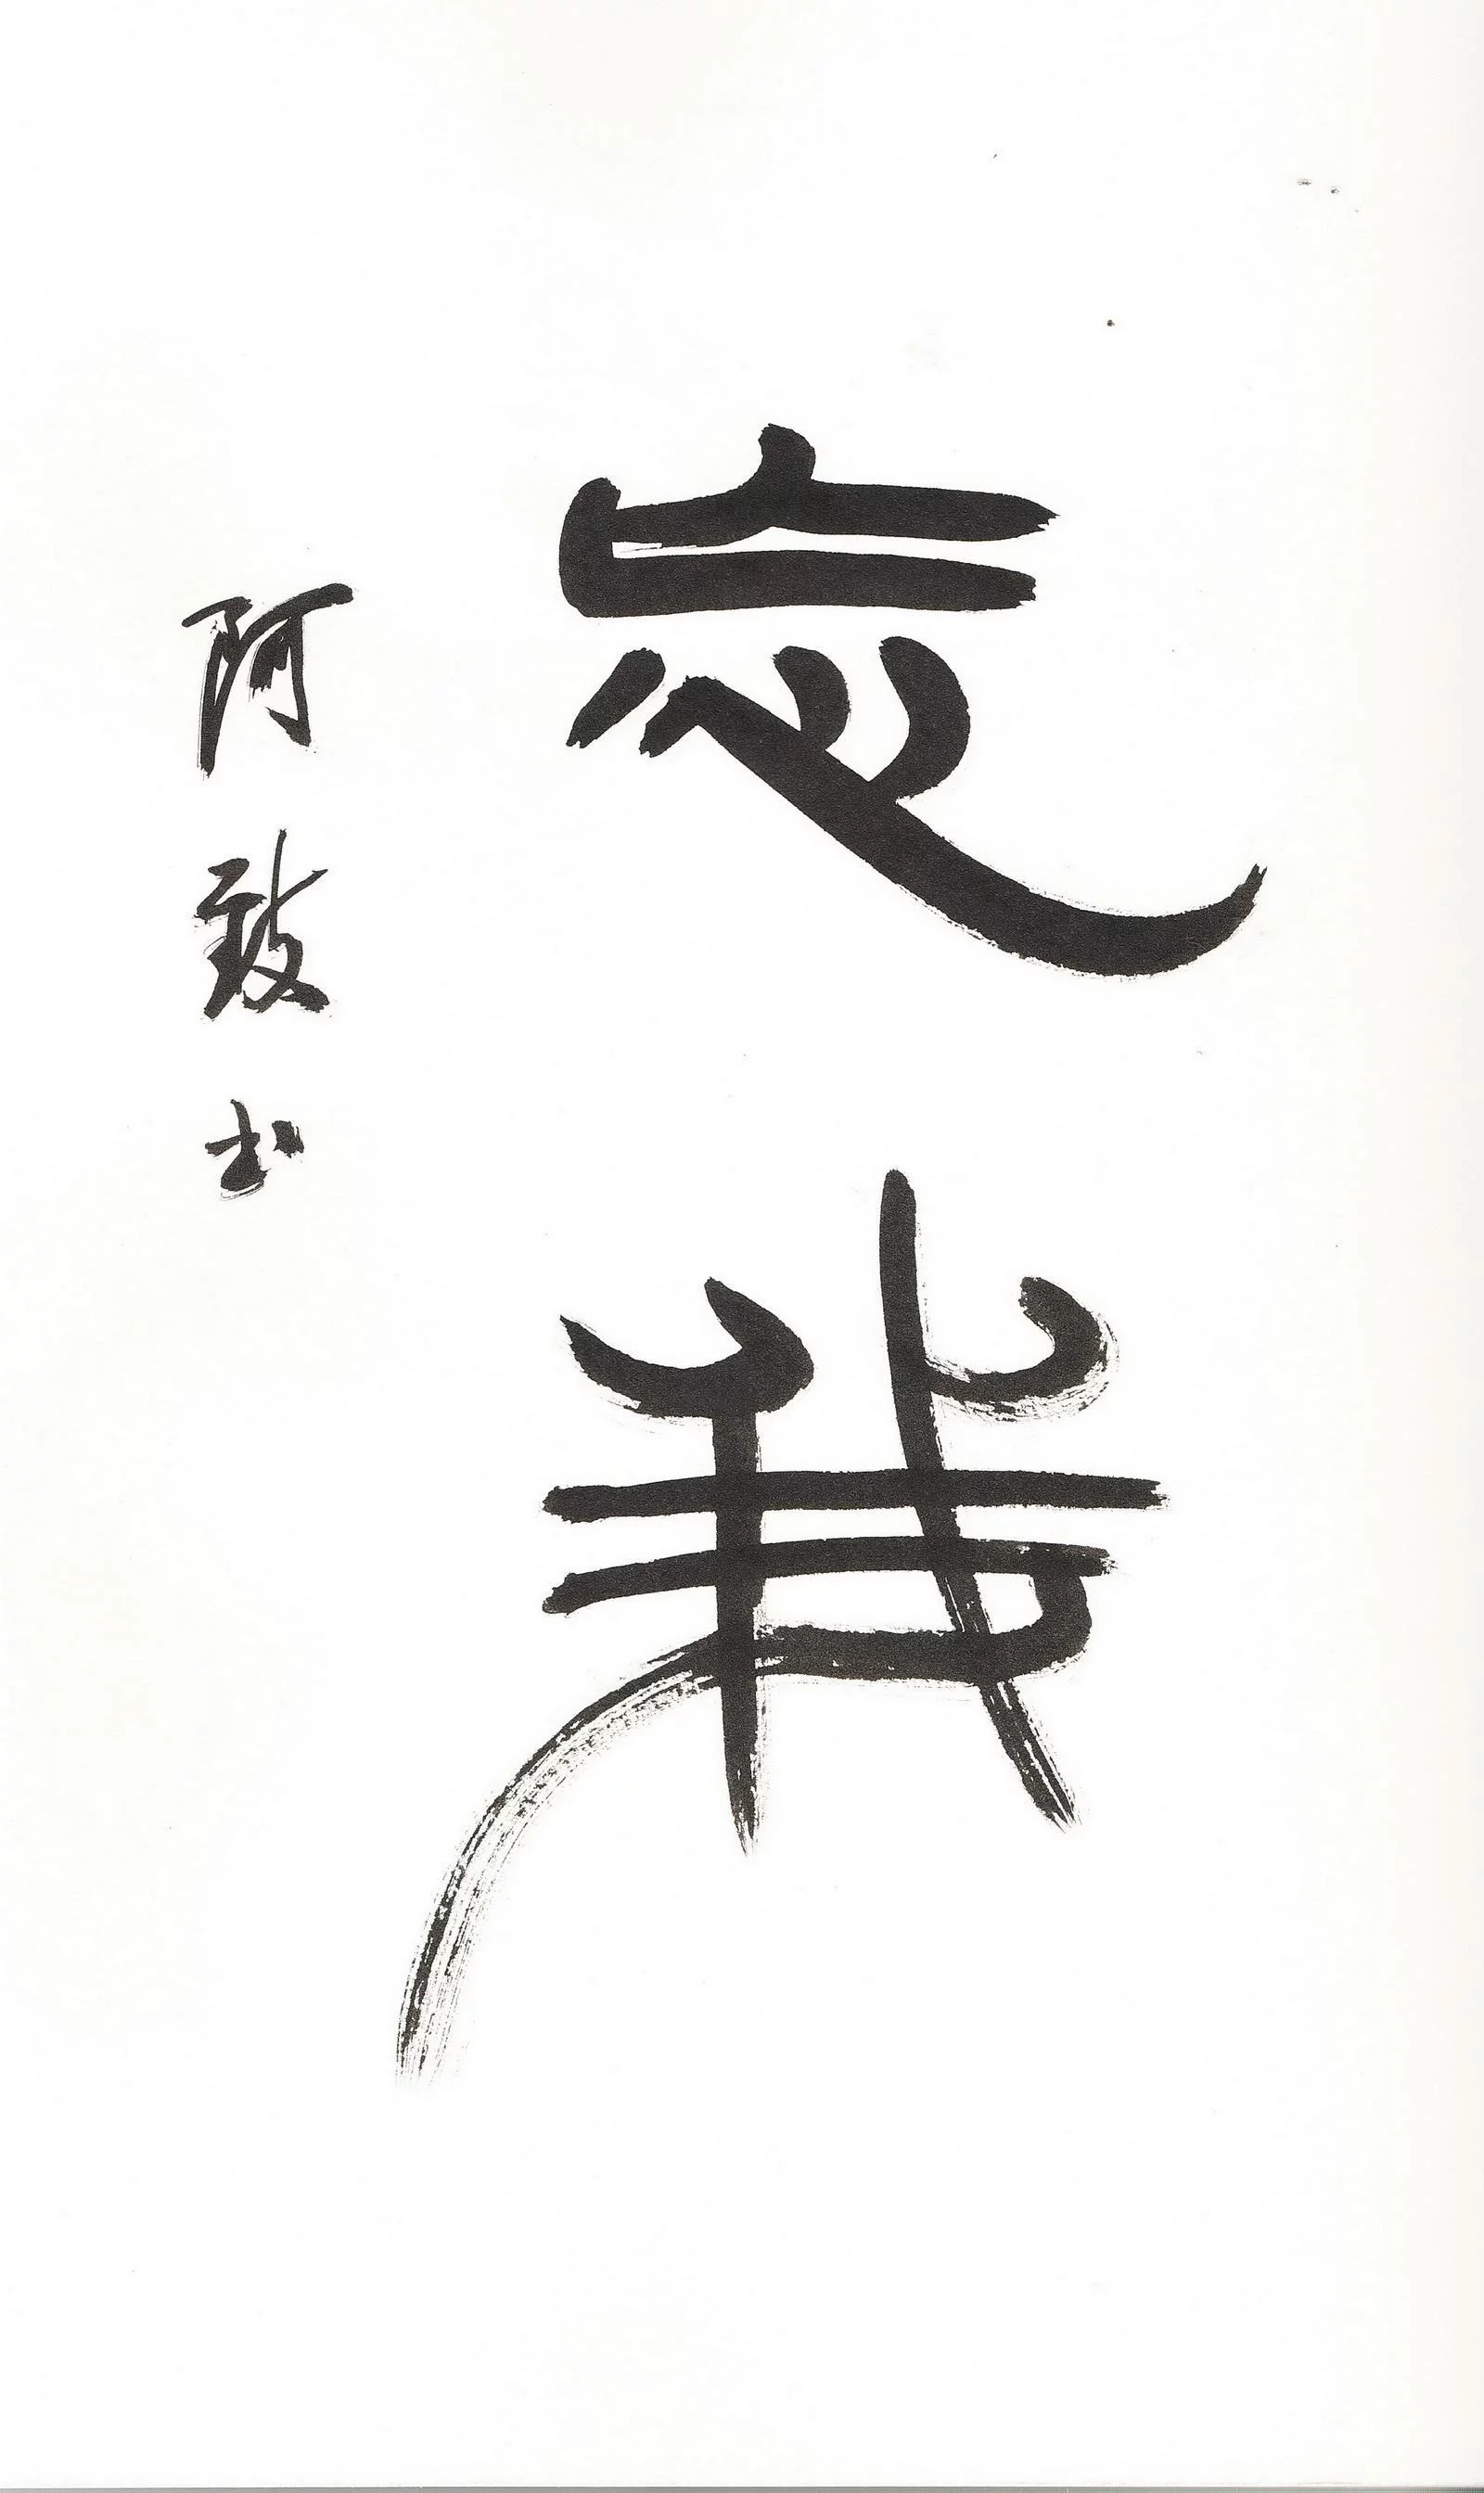 忘我
阿敢书